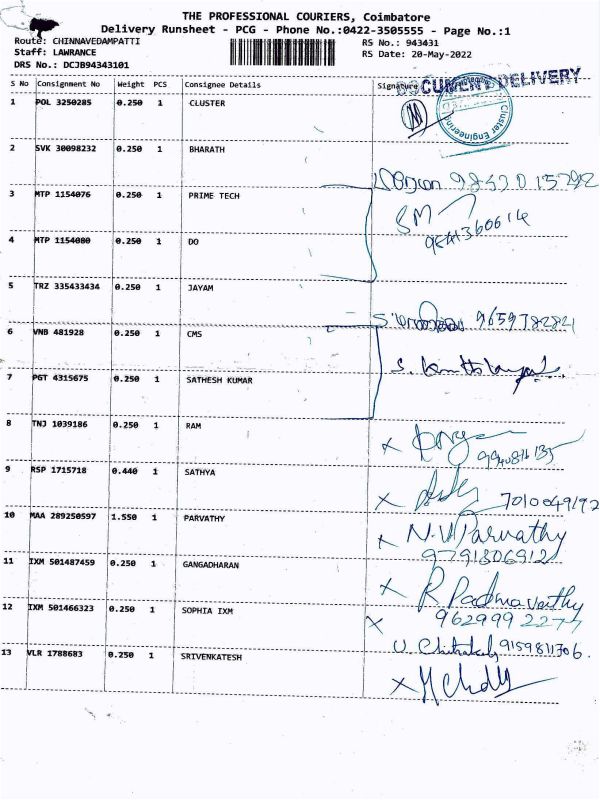 THE PROFESSIONAL COURIERS, Coimbatore
Delivery Runsheet - PCG - Phone No.:0422-3505555 - Page No.:1
Route: CHINNAVEDAMPATTI RS No.: 943431
Staff: LAWRANCE RS Date: 20-May-2022
DRS No.: DCJB94343101
S No Consignment No Weight PCS Consignee Details Signature
DOCUMENT DELIVERY
Cluster Engineering
1 POL 3250285 0.250 1 CLUSTER
2 SVK 30098232 0.250 1 BHARATH
3 MTP 1154076 0.250 1 PRIME TECH
SM
4 MTP 1154080 0.250 1 DO
5 TRZ 335433434 0.250 1 JAYAM
9659782821
6 VNB 481928 0.250 1 CMS
7 PGT 4315675 0.250 1 SATHESH KUMAR
8 TNJ 1039186 0.250 1 RAM
9 RSP 1715718 0.440 1 SATHYA
x 7010049192
10 MAA 289250597 1.550 1 PARVATHY
x N.V.Parvathy
9791306912
11 IXM 501487459 0.250 1 GANGADHARAN
x R Padmavathy
12 IXM 501466323 0.250 1 SOPHIA IXM
9159811706.
13 VLR 1788683 0.250 1 SRIVENKATESH